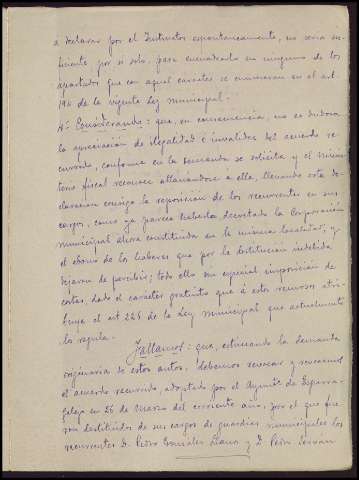 a declarar por el Instructor espontaneamente, no seria su-
ficiente por si solo, para encuadrarlo en ninguno de los
apartados que con aquel caracter se enumeran en el art.
196 de la vigente Ley municipal.
4º Considerando: que, en consecuencia, no es dudosa
la apreciación de ilegalidad e invalidez del acuerdo re-
currido, conforme en la demanda se solicita y el Minis-
terio fiscal reconoce allanandose a ella, llevando esta de-
claracion consigo la reposicion de los recurrentes en sus
cargos, como ya parece haberla decretado la Corporación
municipal ahora constituida en la misma localidad, y
el abono de los haberes que por la destitución indebida
dejaron de percibir; todo ello sin especial imposicion de
costas, dado el caracter gratuito que á estos recursos atri-
buye el art 226 de la Ley municipal que actualmente
la regula.
Fallamos: que, estimando la demanda
originaria de estos autos, debemos revocar y revocamos
el acuerdo recurrido, adoptado por el Aymto de Esparra-
galejo en 26 de Marzo del corriente año, por el que fue-
ron destituidos de sus cargos de guardias municipales los
recurrentes D. Pedro González Llano y D. Pedro